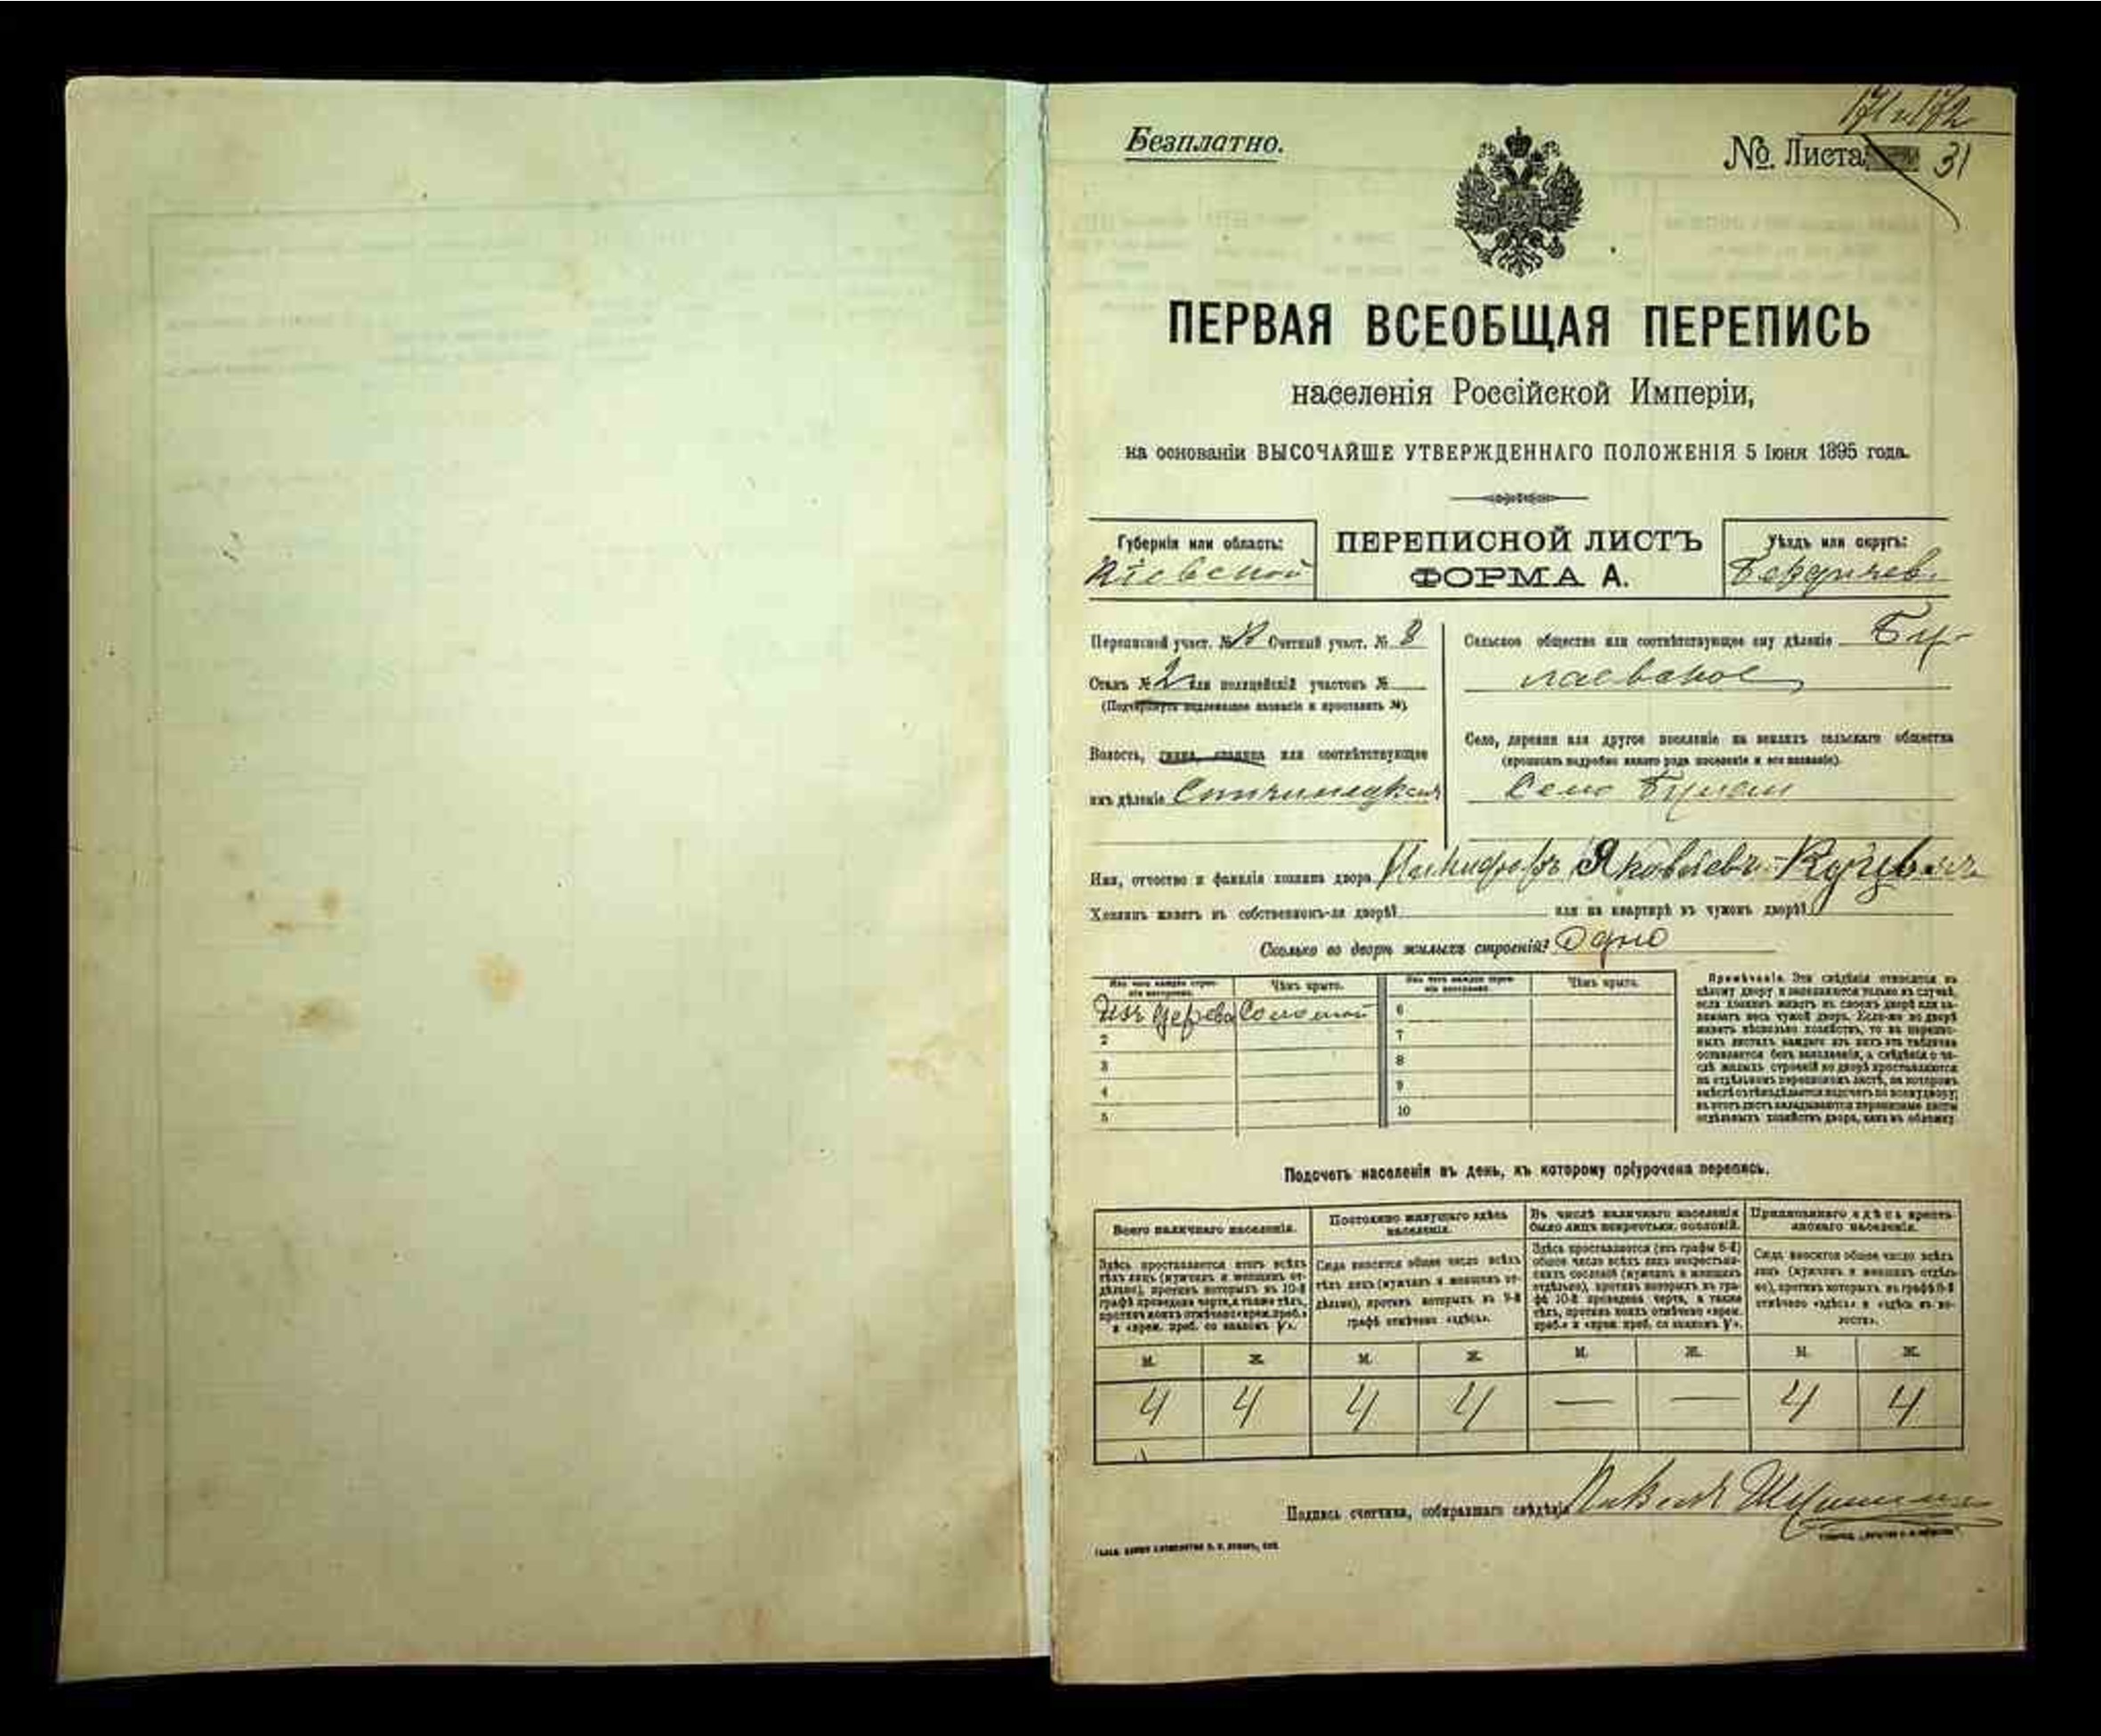 171 и 172
Безплатно.
№ Листа 31
ПЕРВАЯ ВСЕОБЩАЯ ПЕРЕПИСЬ
населенія Россійской Имперіи,
на основаніи ВЫСОЧАЙШЕ УТВЕРЖДЕННАГО ПОЛОЖЕНІЯ 5 Іюня 1895 года.
Губернія или область:
Кіевской
ПЕРЕПИСНОЙ ЛИСТЪ
ФОРМА А.
Уѣздъ или округъ:
Бердичев.
Переписной участ. № Счетный участ. № 8
Станъ № 2 или полицейскій участокъ №
(Подчеркнуть подлежащее названіе и проставить №).
Волость, гмина, станица или соотвѣтствующее
имъ дѣленіе
Сельское общество или соотвѣтствующее ему дѣленіе Бу-
лаевское
Село, деревня или другое поселеніе на земляхъ сельскаго общества
(прописать подробно какого рода поселеніе и его названіе).
Село Булаи
Имя, отчество и фамилія хозяина двора Никифоръ Яковлевъ
Хозяинъ живетъ въ собственномъ-ли дворѣ? или на квартирѣ въ чужомъ дворѣ?
Сколько во дворѣ жилыхъ строеній? Одно
Изъ чего каждое строе-
ніе построено.
Чѣмъ крыто.
Изъ чего каждое строе-
ніе построено.
Чѣмъ крыто.
Изъ дерева Соломой 6
2 7
3 8
4 9
5 10
Примѣчаніе. Эти свѣдѣнія относятся къ
цѣлому двору и заполняются только въ случаѣ,
если хозяинъ живетъ въ своемъ дворѣ или за-
нимаетъ весь чужой дворъ. Если-же во дворѣ
живетъ нѣсколько хозяйствъ, то въ перепис-
ныхъ листахъ каждаго изъ нихъ эта табличка
оставляется безъ заполненія, а свѣдѣнія о чи-
слѣ жилыхъ строеній во дворѣ проставляются
на отдѣльномъ переписномъ листѣ, на которомъ
вмѣстѣ съ тѣмъ дѣлается подсчетъ по всему двору;
въ этотъ листъ вкладываются переписные листы
отдѣльныхъ хозяйствъ двора, какъ въ обложку
Подсчетъ населенія въ день, къ которому пріурочена перепись.
Всего наличнаго населенія.
Здѣсь проставляется итогъ всѣхъ
тѣхъ лицъ (мужчинъ и женщинъ от-
дѣльно), противъ которыхъ въ 10-й
графѣ проведена черта, а также тѣхъ,
противъ коихъ отмѣчено «врем. преб.»
и «врем. преб. со знакомъ V».
Постоянно живущаго здѣсь
населенія.
Сюда вносится общее число всѣхъ
тѣхъ лицъ (мужчинъ и женщинъ от-
дѣльно), противъ которыхъ въ 9-й
графѣ отмѣчено «здѣсь».
Въ числѣ наличнаго населенія
было лицъ некрестьян. сословій.
Здѣсь проставляется (изъ графы 6-й)
общее число всѣхъ лицъ некрестьян-
скихъ сословій (мужчинъ и женщинъ
отдѣльно), противъ которыхъ въ гра-
фѣ 10-й проведена черта, а также
тѣхъ, противъ коихъ отмѣчено «врем.
преб.» и «врем. преб. со знакомъ V».
Приписаннаго здѣсь кресть-
янскаго населенія.
Сюда вносится общее число всѣхъ
лицъ (мужчинъ и женщинъ отдѣль-
но), противъ которыхъ въ графѣ 8-й
отмѣчено «здѣсь» и «здѣсь въ во-
лости».
М. Ж. М. Ж. М. Ж. М. Ж.
4 4 4 4 — — 4 4
Подпись счетчика, собиравшаго свѣдѣнія